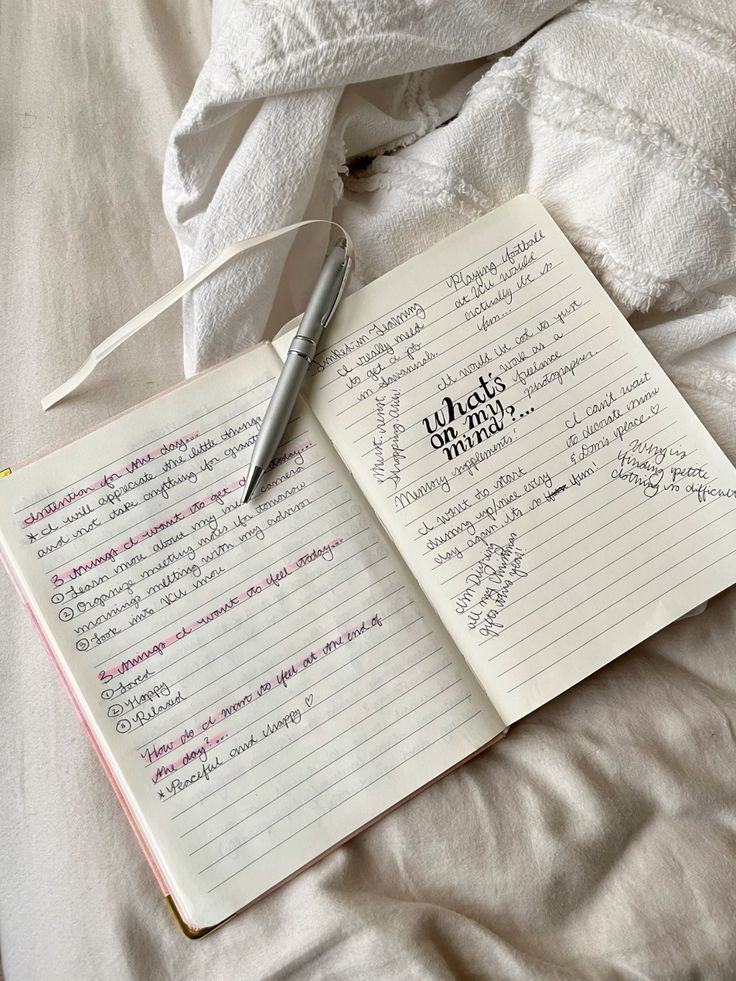 Intention for the day...
* I will appreciate the little things
and not take anything for granted
3 things I want to get done today...
① Learn more about my camera
② Organize meeting notes for tomorrow
mornings meeting with my advisor
③ Look into VCU more
3 things I want to feel today...
① Loved
② Happy
③ Relaxed
How do I want to feel at the end of
the day?...
* Peaceful and happy ♡
Playing football
at VCU would
actually be so
fun...
in Learning
I really need
to get a job
in Savannah.
It would be cool to just
work as a
freelance
photographer.
Must resist
shopping
what's
on my
mind?...
Memory supplements?
I can't wait
to decorate mine
& Dom's place ♡
Why is
finding petite
clothing so difficult
I want to start
dressing up nice every
day again its so fun!
I'm DIY-ing
all my Christmas
gifts this year!!